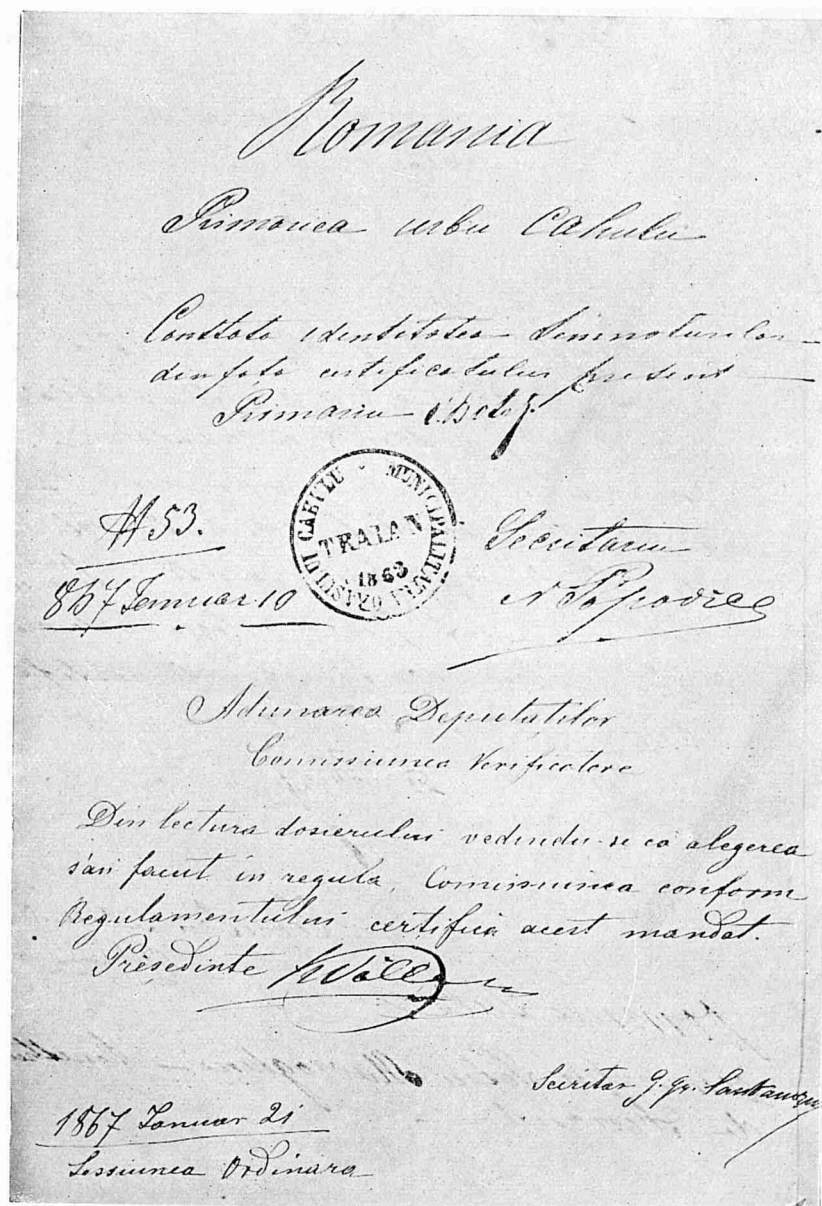 Romania
Primariea urbei Cahulu
Constata identitatea semnaturilor
din fața certificatului present
Primariu
№ 53.
867 Ianuar 10
MUNICIPALITATEA ORASULUI CAHULU
TRAIAN
1863
Secretariu
Adunarea Deputaților
Comissiunea Verificatore
Din lectura dosierului vedindu-se ca alegerea
s'au facut in regula, Comissiunea conform
Regulamentului certifică acest mandat.
Președinte
Secretar G. Gr.
1867 Ianuar 21
Sessiunea Ordinara